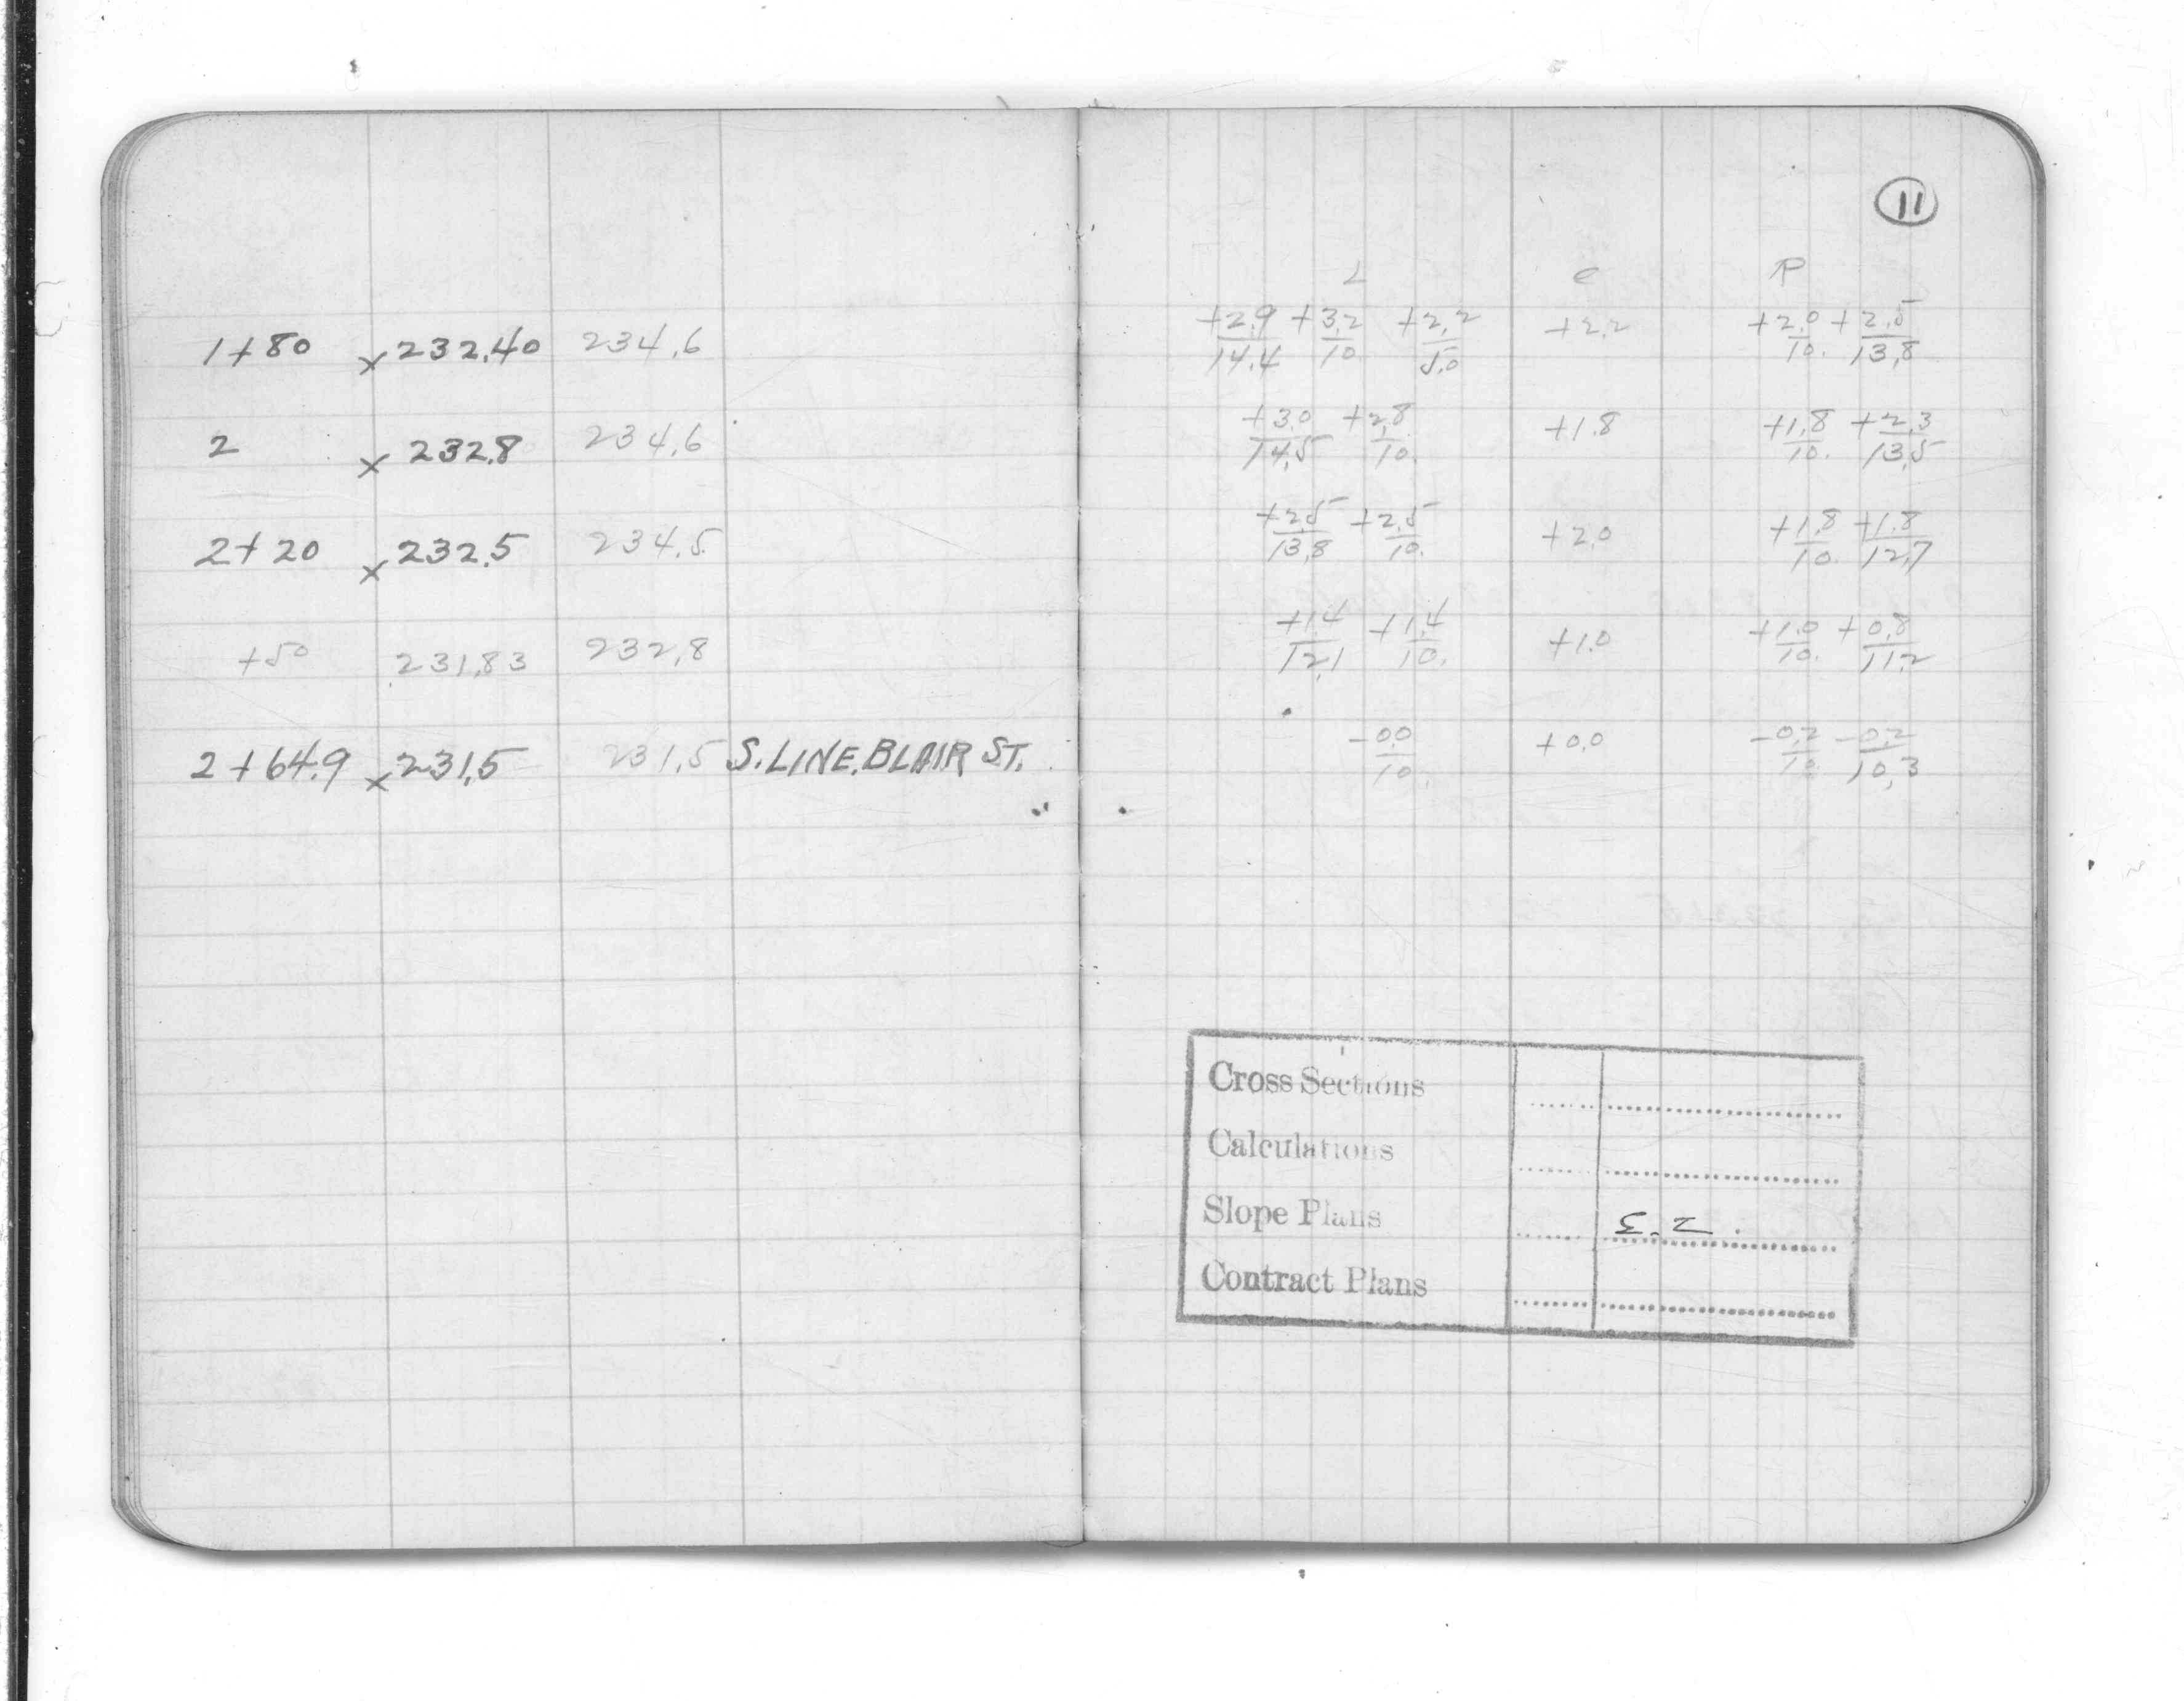 11
L C R
1+80 x 232.40 234.6 +2.9/14.4 +3.2/10. +2.2/5.0 +2.2 +2.0/10. +2.5/13.8
2 x 232.8 234.6 +3.0/14.5 +2.8/10. +1.8 +1.8/10. +2.3/13.5
2+20 x 232.5 234.5 +2.5/13.8 +2.5/10. +2.0 +1.8/10. +1.8/12.7
+50 231.83 232.8 +1.4/12.1 +1.4/10. +1.0 +1.0/10. +0.8/11.2
2+64.9 x 231.5 231.5 S. LINE. BLAIR ST. -0.0/10. +0.0 -0.2/10 -0.2/10.3
Cross Sections
Calculations
Slope Plans
Contract Plans